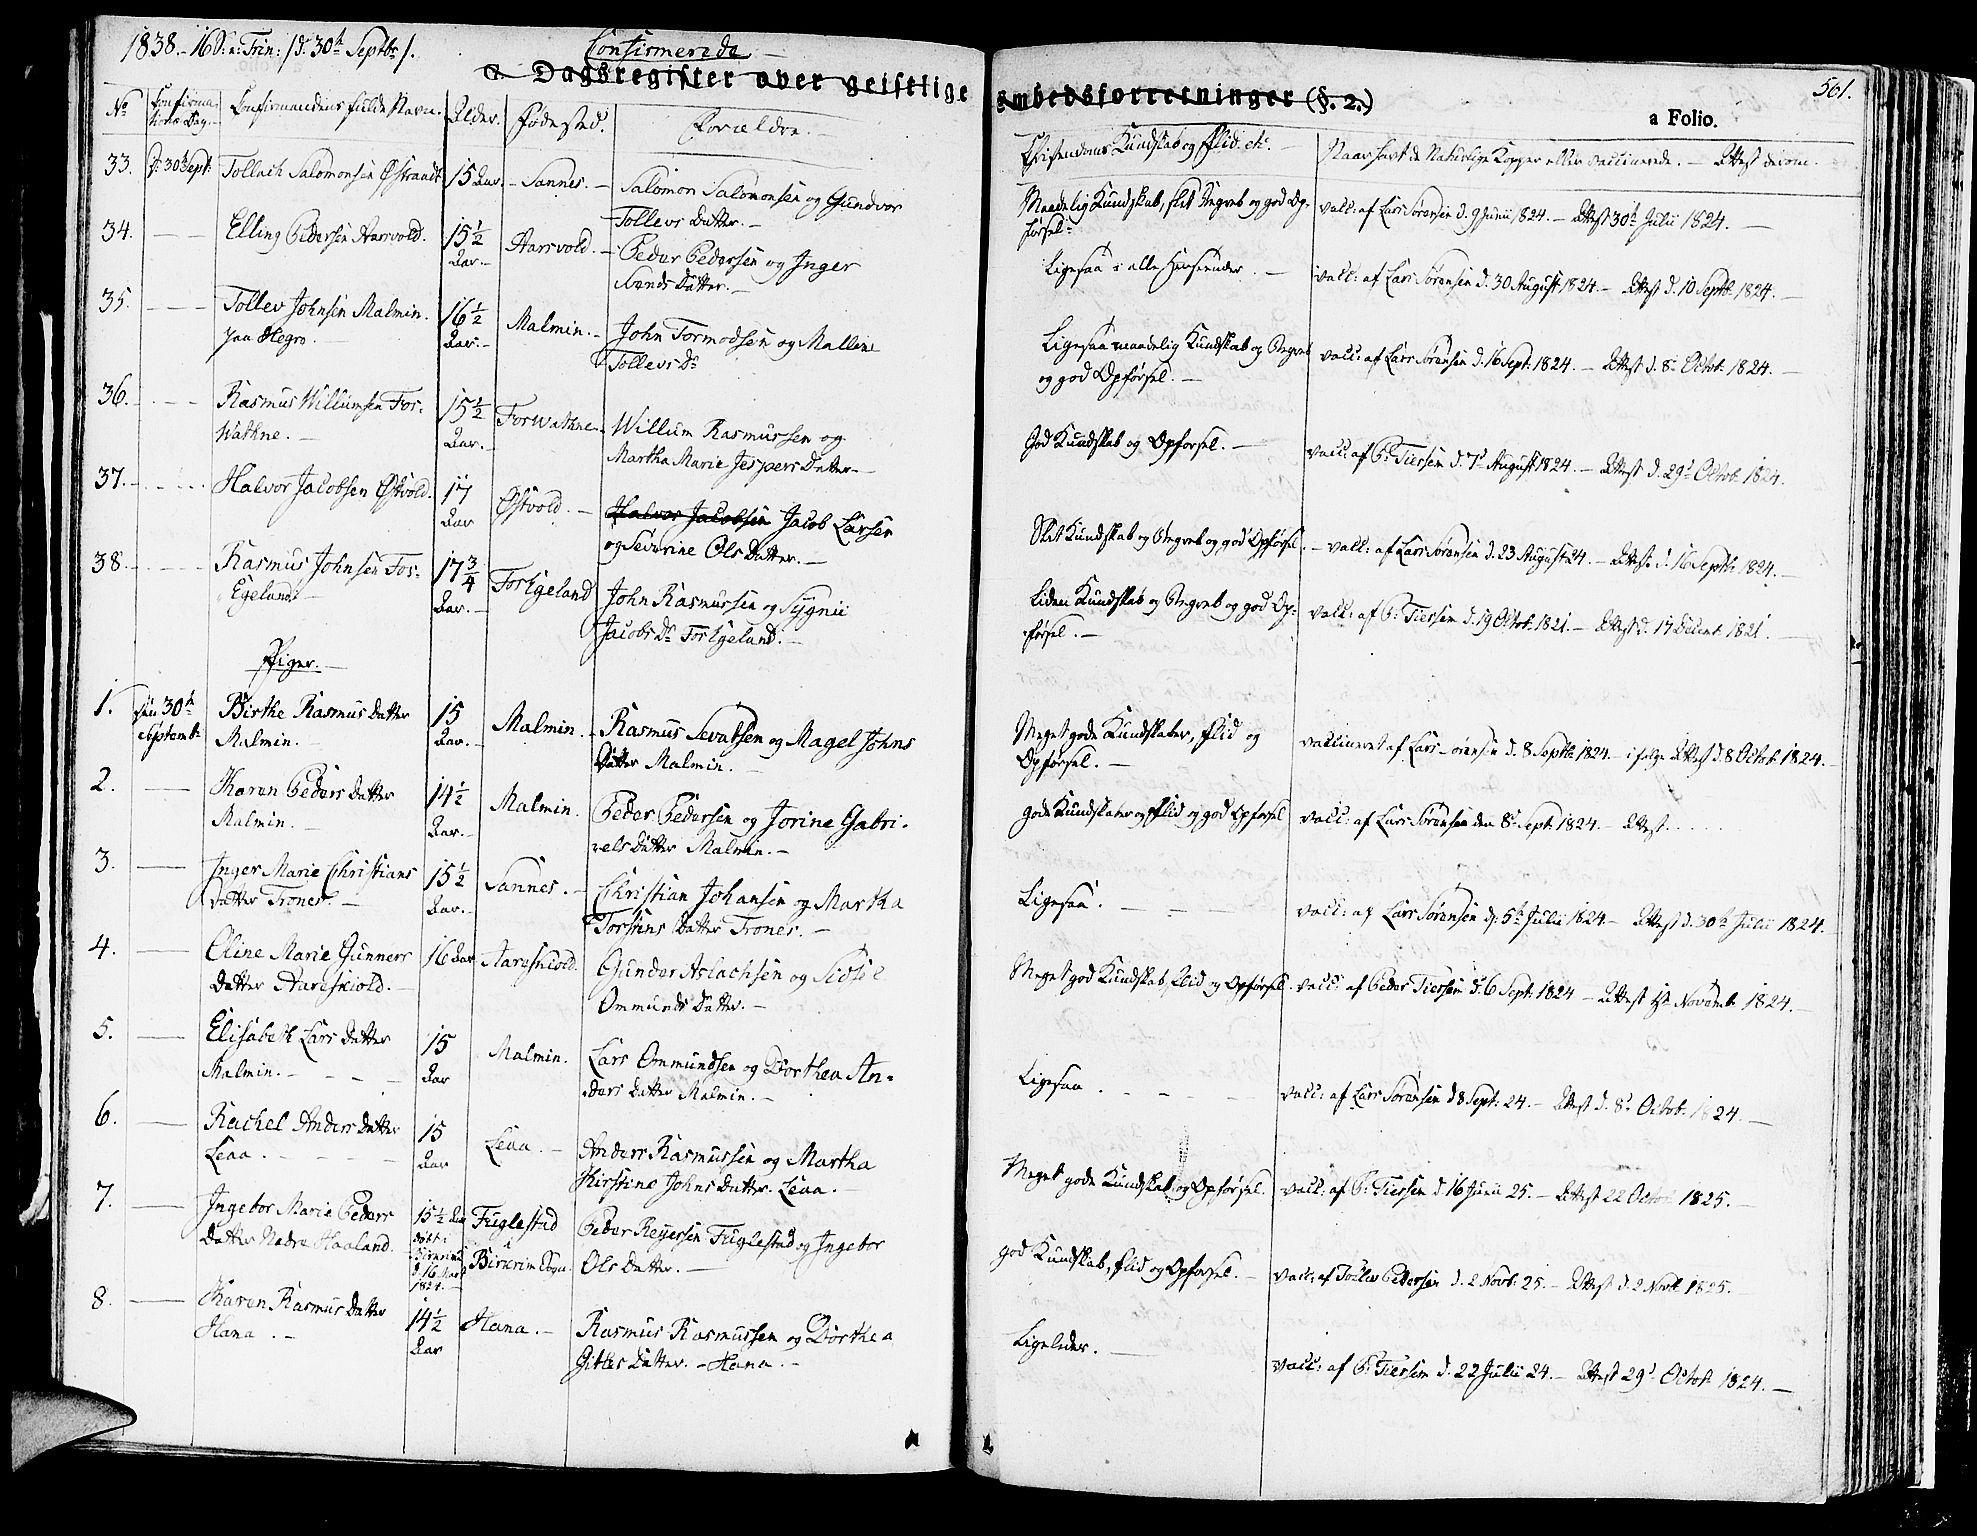 1838. - 16 S: a: Trin: / d. 30te Septbr /.
Confirmerede
Dagsregister over geistlige
Embedsforretninger (§. 2.)
561.
a Folio.
No
Confirma-
tions Dag.
Confirmandens fulde Navn.
Alder.
Fødested.
Forældre.
Christendoms Kundskab og Flid etc.
Naar havt de Naturlige Kopper eller vaccinerede. - Attest derom.
33.
d. 30te Sept.
Tollach Salomonsen Østraadt
15 Aar.
Sannes.
Salomon Salomonsen og Gundvor
Tollevs Datter.
Maadelig Kundskab, slet Begreb og god Op-
førsel
vacc: af Lars Sørensen d. 9 Junii 1824. - Attest 30te Julii 1824.
34.
Elling Pedersen Aarsvold.
15½
Aar.
Aarsvold.
Peder Pedersen og Inger
Svends Datter.
Ligesaa i alle Henseender.
vacc: af Lars Sørensen d. 30 August 1824. - Attest d. 10 Septb. 1824.
35.
Tollev Johnsen Malmin.
paa Hegro.
16½
Aar.
Malmin.
John Tormodsen og Mallene
Tollevs Dr
Ligesaa maadelig Kundskab og Begreb
og god Opførsel.
vacc: af Lars Sørensen d. 16 Sept. 1824. - Attest d. 8de Octob. 1824.
36.
Rasmus Willumsen Fos-
Wathne.
15½
Aar.
FosWathne.
Willum Rasmussen og
Martha Marie Jespers Datter
God Kundskab og Opførsel.
vacc: af P: Tiersen d. 7de August 1824. - Attest d. 29de Octob. 1824.
37.
Halvor Jacobsen Østvold.
17
Aar
Østvold.
Halvor Jacobsen Jacob Larsen
og Severine Ols Datter.
Slet Kundskab og Begreb og god Opførsel.
vacc: af Lars Sørensen d. 23 August 24. - Attest d. 16 Septb. 1824.
38.
Rasmus Johnsen Fos-
Egeland.
17¾
Aar.
FosEgeland
John Rasmussen og Sygnii
Jacobs Dr FosEgeland.
Liden Kundskab og Begreb og god Op-
førsel.
vacc: af P: Tiersen d. 19 Octob. 1821. - Attest d. 17 Decemb. 1821.
Piger.
1.
den 30te
Septemb.
Birthe Rasmus Datter
Malmin.
15
Aar.
Malmin.
Rasmus Sevatsen og Magel Johns
Datter Malmin.
Meget gode Kundskaber, Flid og
Opførsel.
vaccineret af Lars Sørensen d. 8 Septb. 1824. - i følge Attest d. 8 Octob. 1824.
2.
Karen Peders Datter
Malmin.
14½
Aar.
Malmin.
Peder Pedersen og Jorine Gabri-
els Datter Malmin.
gode Kundskaber og Flid og god Opførsel
vacc: af Lars Sørensen den 8de Sept: 1824. - Attest
3.
Inger Marie Christians
Datter Trones.
15½
Aar.
Sannes.
Christian Johansen og Martha
Torstens Datter Trones.
Ligesaa.
vacc: af Lars Sørensen d: 5te Julii 1824 - Attest d. 30te Julii 1824.
4.
Eline Marie Gunners
Datter Aareskiold.
16 Aar
Aareskiold.
Gunder Aslachsen og Sidsel
Ommunds Datter.
Meget god Kundskab, Flid og Opførsel.
vacc: af Peder Tiersen d. 6 Sept: 1824 - Attest 1ste Novemb. 1824.
5.
Elisabeth Lars Datter
Malmin.
15
Aar
Malmin.
Lars Ommundsen og Dorthea An-
ders Datter Malmin.
Ligesaa.
vacc: af Lars Sørensen d 8 Sept: 24. - Attest d. 8de Octob. 1824.
6.
Rachel Anders Datter
Leaa.
15
Aar
Leaa.
Anders Rasmussen og Martha
Kirstine Johns Datter. Leaa.
Meget gode Kundskab og Opførsel.
vacc: af P: Tiersen d 16 Junii 25. - Attest 22 Octob. 1825.
7.
Ingebor Marie Peders
Datter Nedre Haaland.
15½ Aar
døbt i
Birkrim
d. 16 Mart
1824.
Fuglestad
i
Birkrim Sogn.
Peder Reyersen Fuglestad og Ingebor
Ols Datter.
god Kundskab, Flid og Opførsel.
vacc: af Tollev Pedersen d. 2 Novb: 25. - Attest d. 2 Novb. 1825.
8.
Karen Rasmus Datter
Hana.
14½
Aar
Hana.
Rasmus Rasmussen og Dorthea
Gitles Datter. - Hana.
Ligeledes.
vacc: af P: Tiersen d. 22 Julii 24. - Attest 29de Octob. 1824.